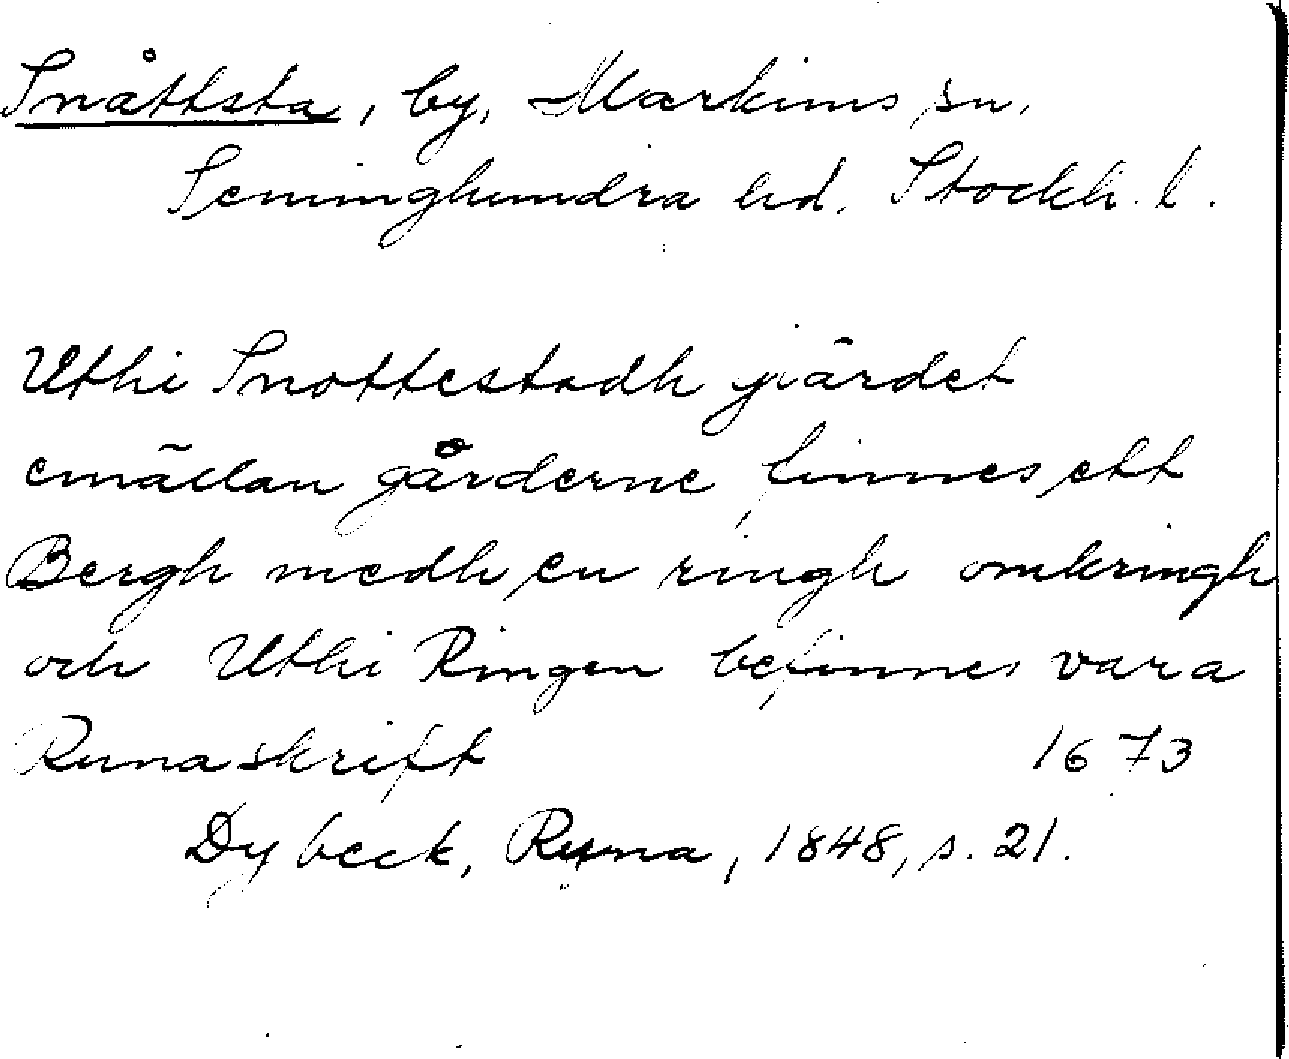 Snåttsta, by, Markims sn,
Seminghundra hd. Stockh. l.
Uthi Snottestadh giärdet
emällan gårderne finnes ett
Bergh medh en ringh omkringh
och Uthi Ringen befinnes vara
Runaskrift 1673
Dybeck, Runa, 1848, s. 21.